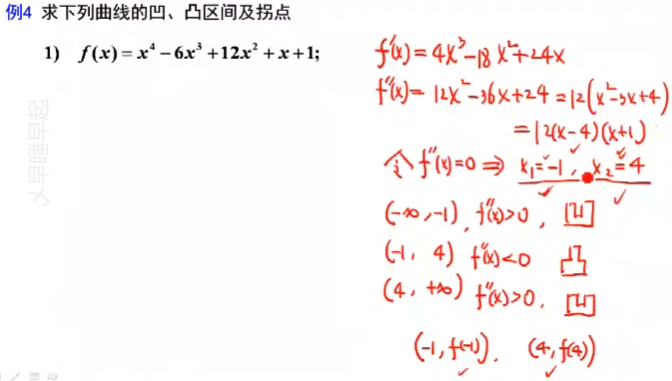 例4 求下列曲线的凹、凸区间及拐点
1) f(x) = x⁴ − 6x³ + 12x² + x + 1;
f'(x) = 4x³ − 18x² + 24x
f''(x) = 12x² − 36x + 24 = 12(x² − 3x + 4)
= 12(x − 4)(x + 1)
令 f''(x) = 0 ⇒ x₁ = −1, x₂ = 4
(−∞, −1), f''(x) > 0, 凹
(−1, 4) f''(x) < 0 凸
(4, +∞) f''(x) > 0, 凹
(−1, f(−1)), (4, f(4))
乂早睡早起